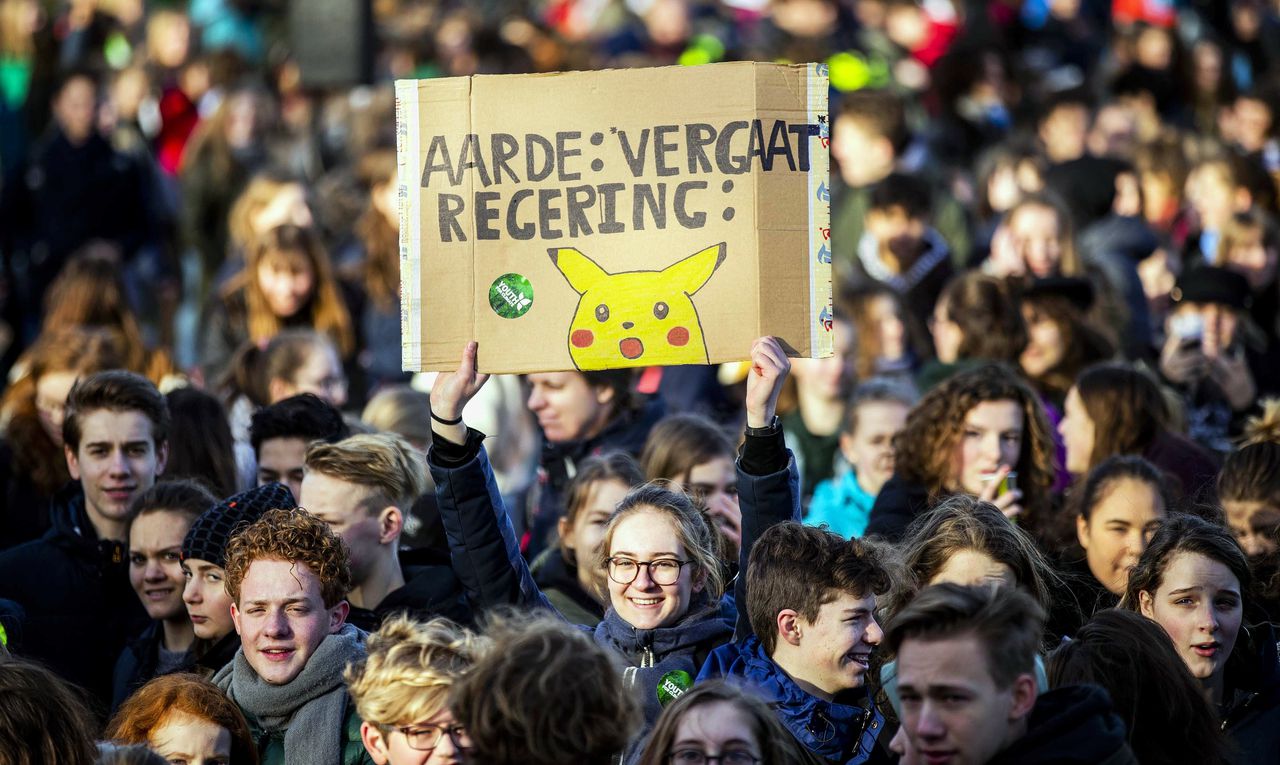 AARDE: *VERGAAT
REGERING:
YOUTH
YOUTH